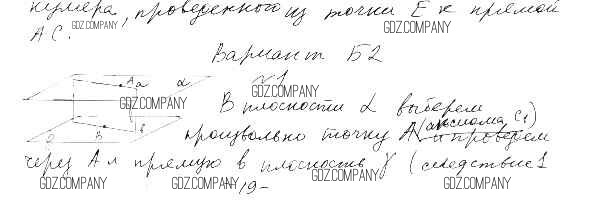 нуляра, проведенного из точки E к прямой
GDZ.COMPANY GDZ.COMPANY
AC.
Вариант Б2
№1
GDZ.COMPANY
A a α
GDZ.COMPANY
В плоскости α выберем
B б
произвольно точку A (аксиома C1) и проведем
через A прямую в плоскость γ (следствие 1
GDZ.COMPANY GDZ.COMPANY GDZ.COMPANY GDZ.COMPANY
-19-